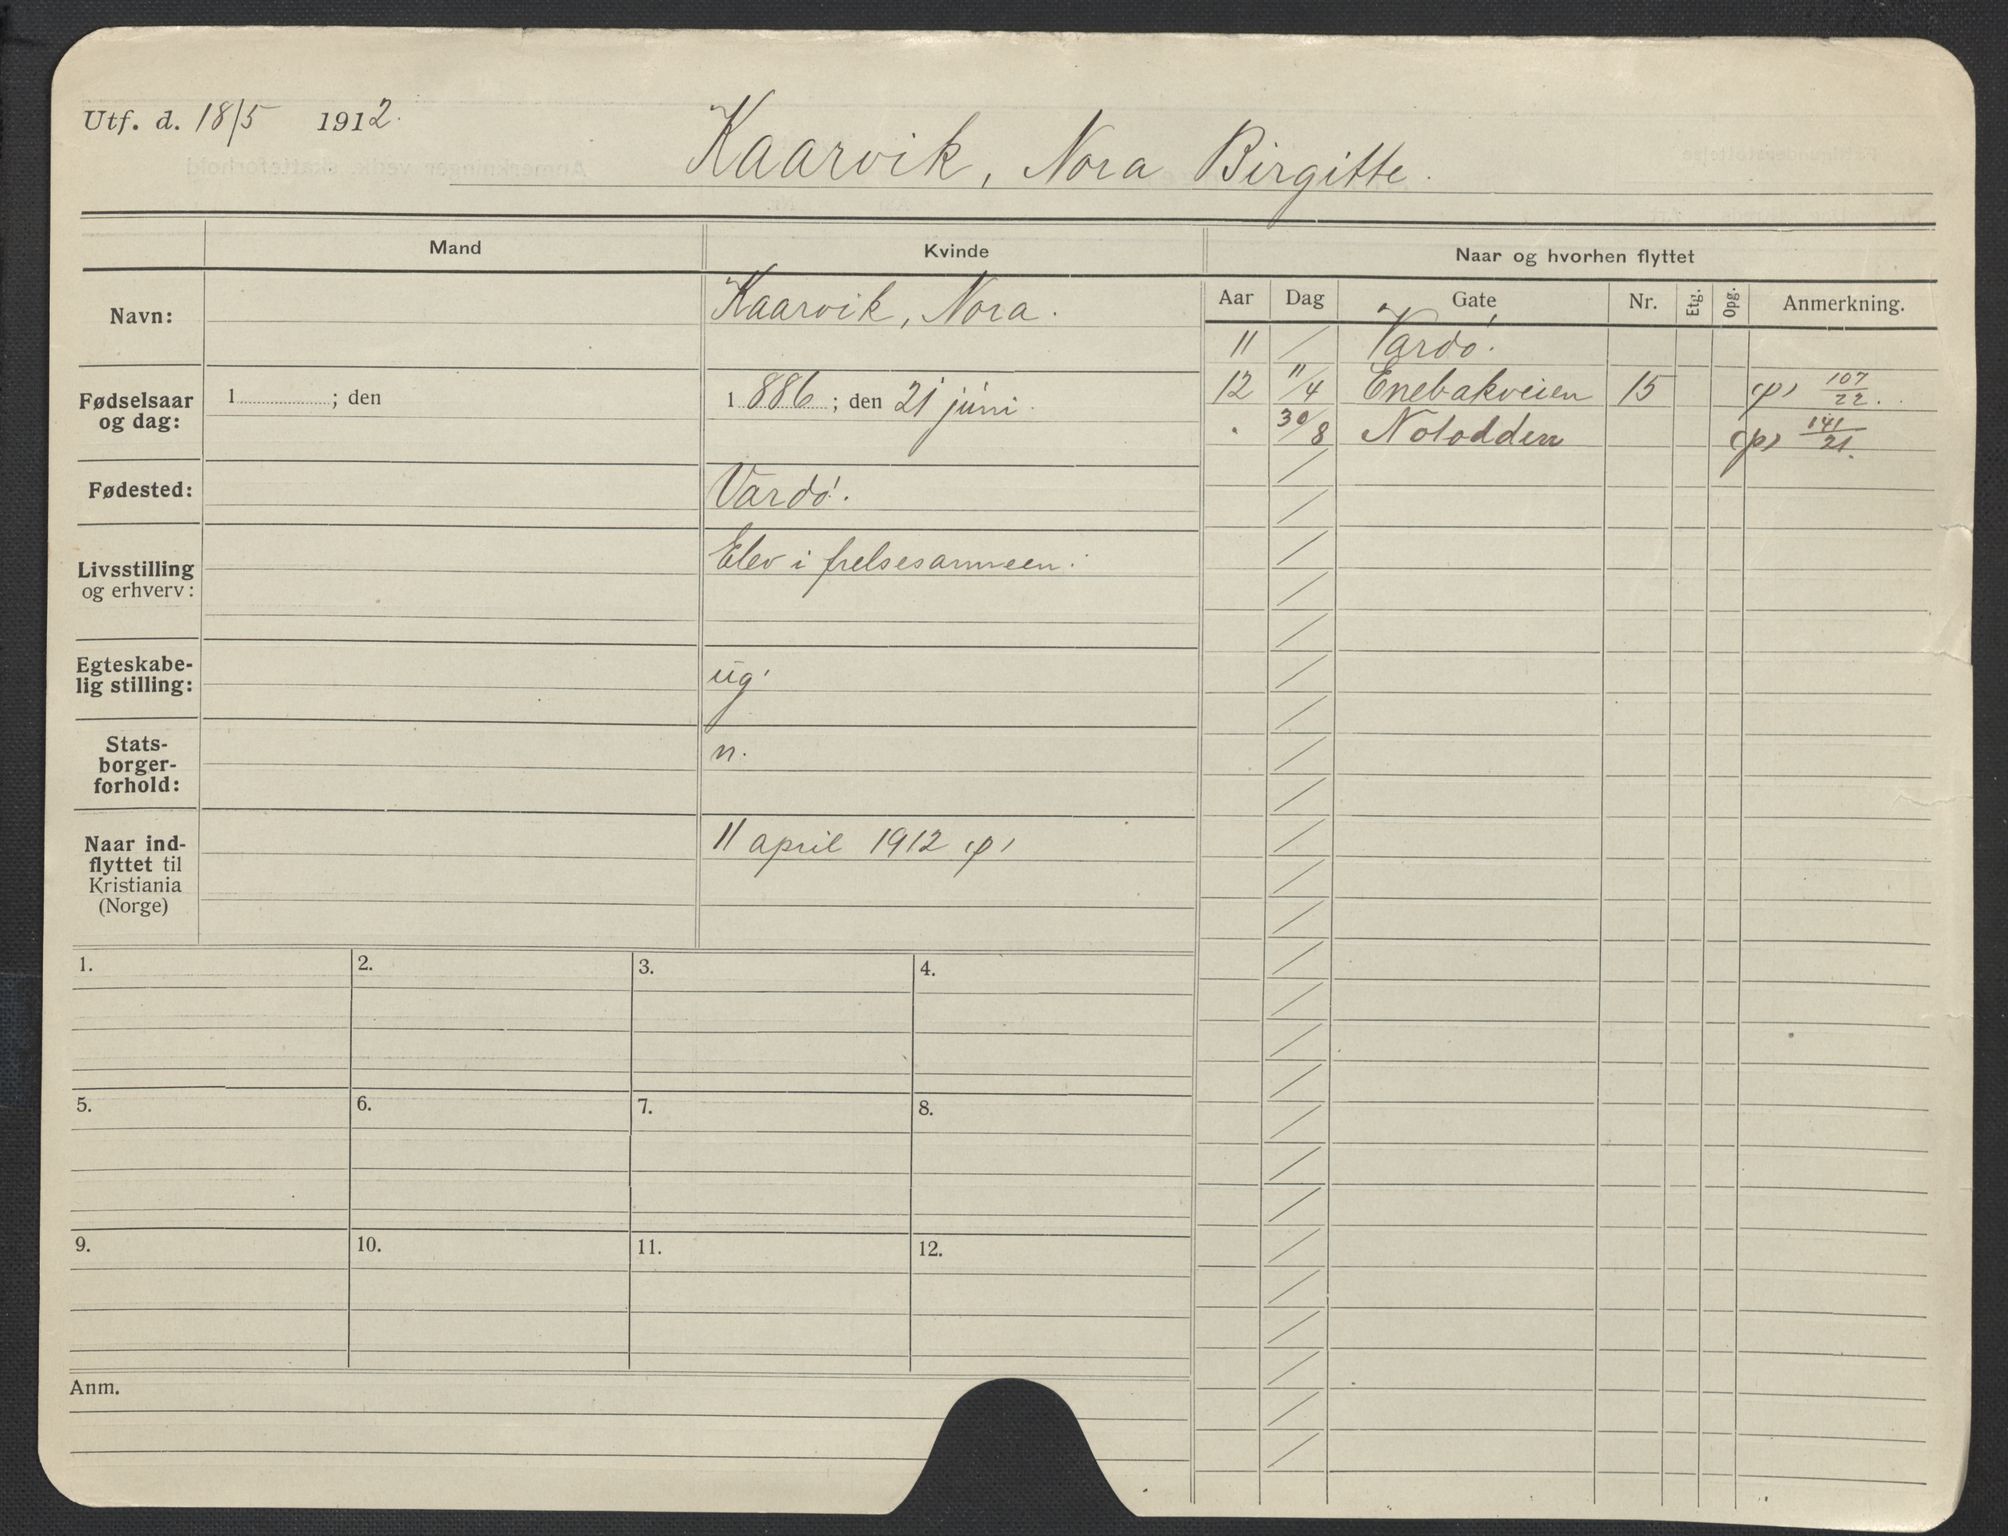 Utf. d. 18/5 1912.
Kaarvik, Nora Birgitte.
Mand
Kvinde
Naar og hvorhen flyttet
Navn:
Kaarvik, Nora.
Aar Dag Gate Nr. Etg. Opg. Anmerkning.
11 / Vardö.
12 11/4 Enebakveien 15 (p) 107/22.
. 30/8 Notodden (p) 141/21.
Fødselsaar
og dag:
1 ; den
1886; den 21 juni.
Fødested:
Vardö.
Livsstilling
og erhverv:
Elev i frelsesarmeen.
Egteskabe-
lig stilling:
ug.
Stats-
borger-
forhold:
n.
Naar ind-
flyttet til
Kristiania
(Norge)
11 april 1912 (p)
1. 2. 3. 4.
5. 6. 7. 8.
9. 10. 11. 12.
Anm.